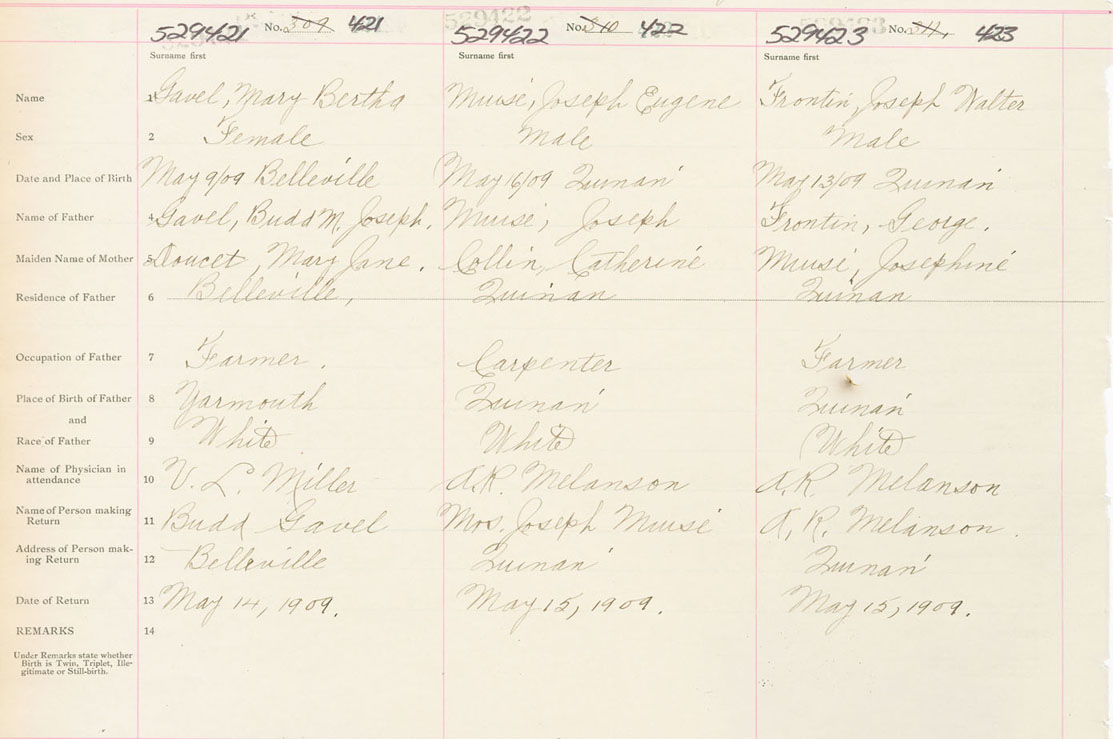 529421 No. 309 421 529422 No. 310 422 529423 No. 311. 423
Surname first Surname first Surname first
Name 1 Gavel, Mary Bertha Muise, Joseph Eugene Frontin, Joseph Walter
Sex 2 Female Male Male
Date and Place of Birth May 9/09 Belleville May 16/09 Quinan May 13/09 Quinan
Name of Father 4 Gavel, Budd M. Joseph. Muise, Joseph Frontin, George.
Maiden Name of Mother 5 Doucet, Mary Jane. Collin, Catherine Muise, Josephine
Residence of Father 6 Belleville, Quinan Quinan
Occupation of Father 7 Farmer. Carpenter Farmer
Place of Birth of Father 8 Yarmouth Quinan Quinan
and
Race of Father 9 White White White
Name of Physician in
attendance 10 V. L. Miller A.R. Melanson A.R. Melanson
Name of Person making
Return 11 Budd Gavel Mrs. Joseph Muise A, R. Melanson.
Address of Person mak-
ing Return 12 Belleville Quinan Quinan
Date of Return 13 May 14, 1909. May 15, 1909. May 15, 1909.
REMARKS 14
Under Remarks state whether
Birth is Twin, Triplet, Ille-
gitimate or Still-birth.